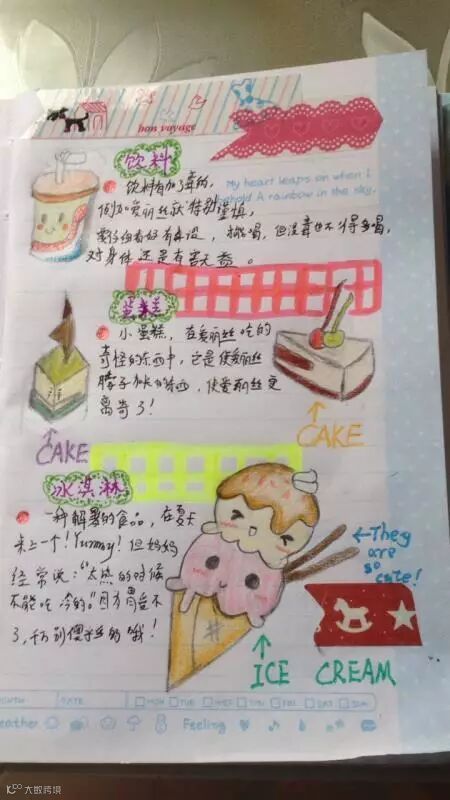 bon voyage
饮料
饮料有加了毒的,
My heart leaps on when I
behold A rainbow in the sky.
例如爱丽丝
要仔细看好有毒没, 再喝, 但没毒也不得多喝,
对身体还是有害无益。
蛋糕
小蛋糕, 在爱丽丝吃的
奇怪的东西中, 它是使爱丽丝
脖子加长的东西, 使爱丽丝更
离奇了!
CAKE
CAKE
冰淇淋
一种解暑的食品, 在夏天
来上一个! Yummy! 但妈妈
经常说:“太热的时候
不能吃冷的。”因为胃受不
了, 千万别傻乎乎的哦!
←They
are
so
cute!
ICE CREAM
MONTH DATE MON TUE WED THU FRI SAT SUN
Weather Feeling
大数跨境